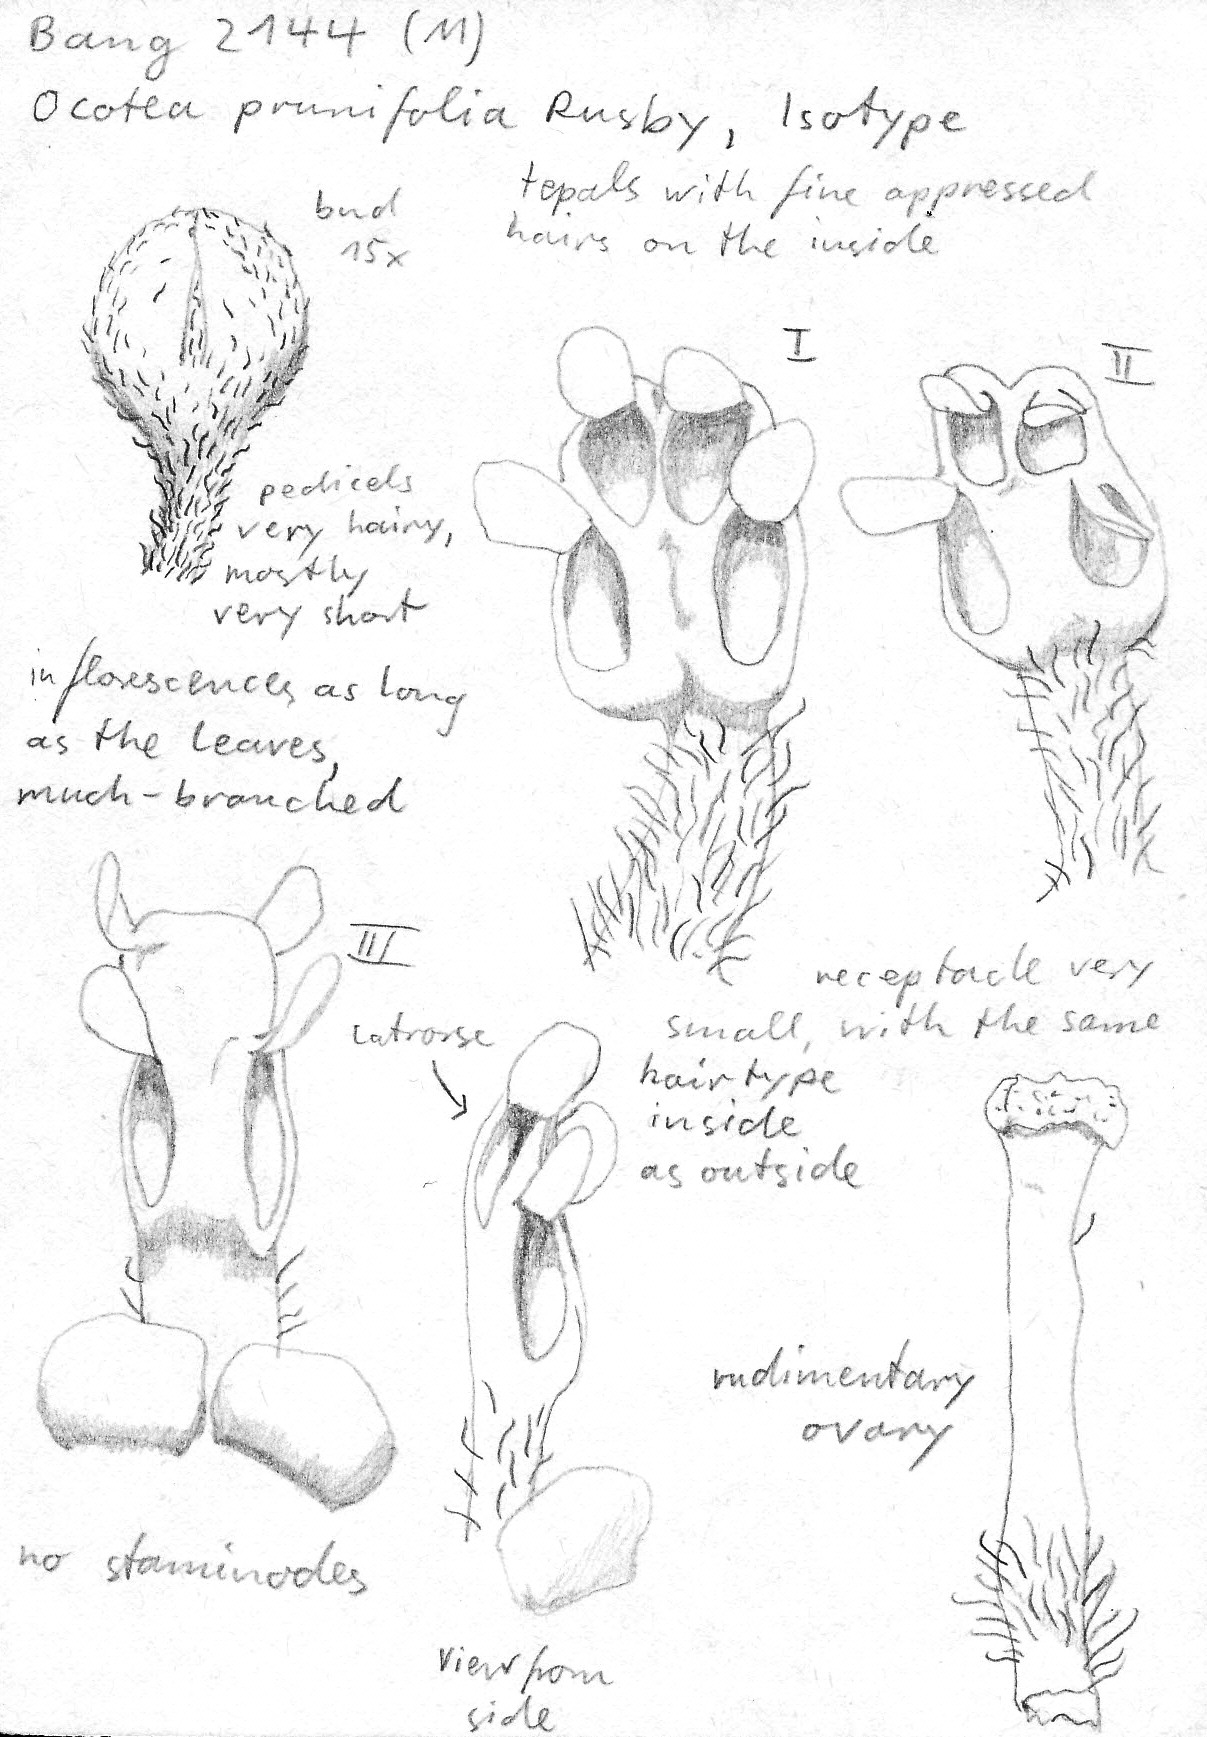 Bang 2144 (M)
Ocotea prunifolia Rusby, Isotype
tepals with fine appressed
hairs on the inside
bud
15x
I
II
pedicels
very hairy,
mostly
very short
inflorescences as long
as the leaves,
much-branched
III
latrorse
receptacle very
small, with the same
hair type
inside
as outside
rudimentary
ovary
no staminodes
view from
side